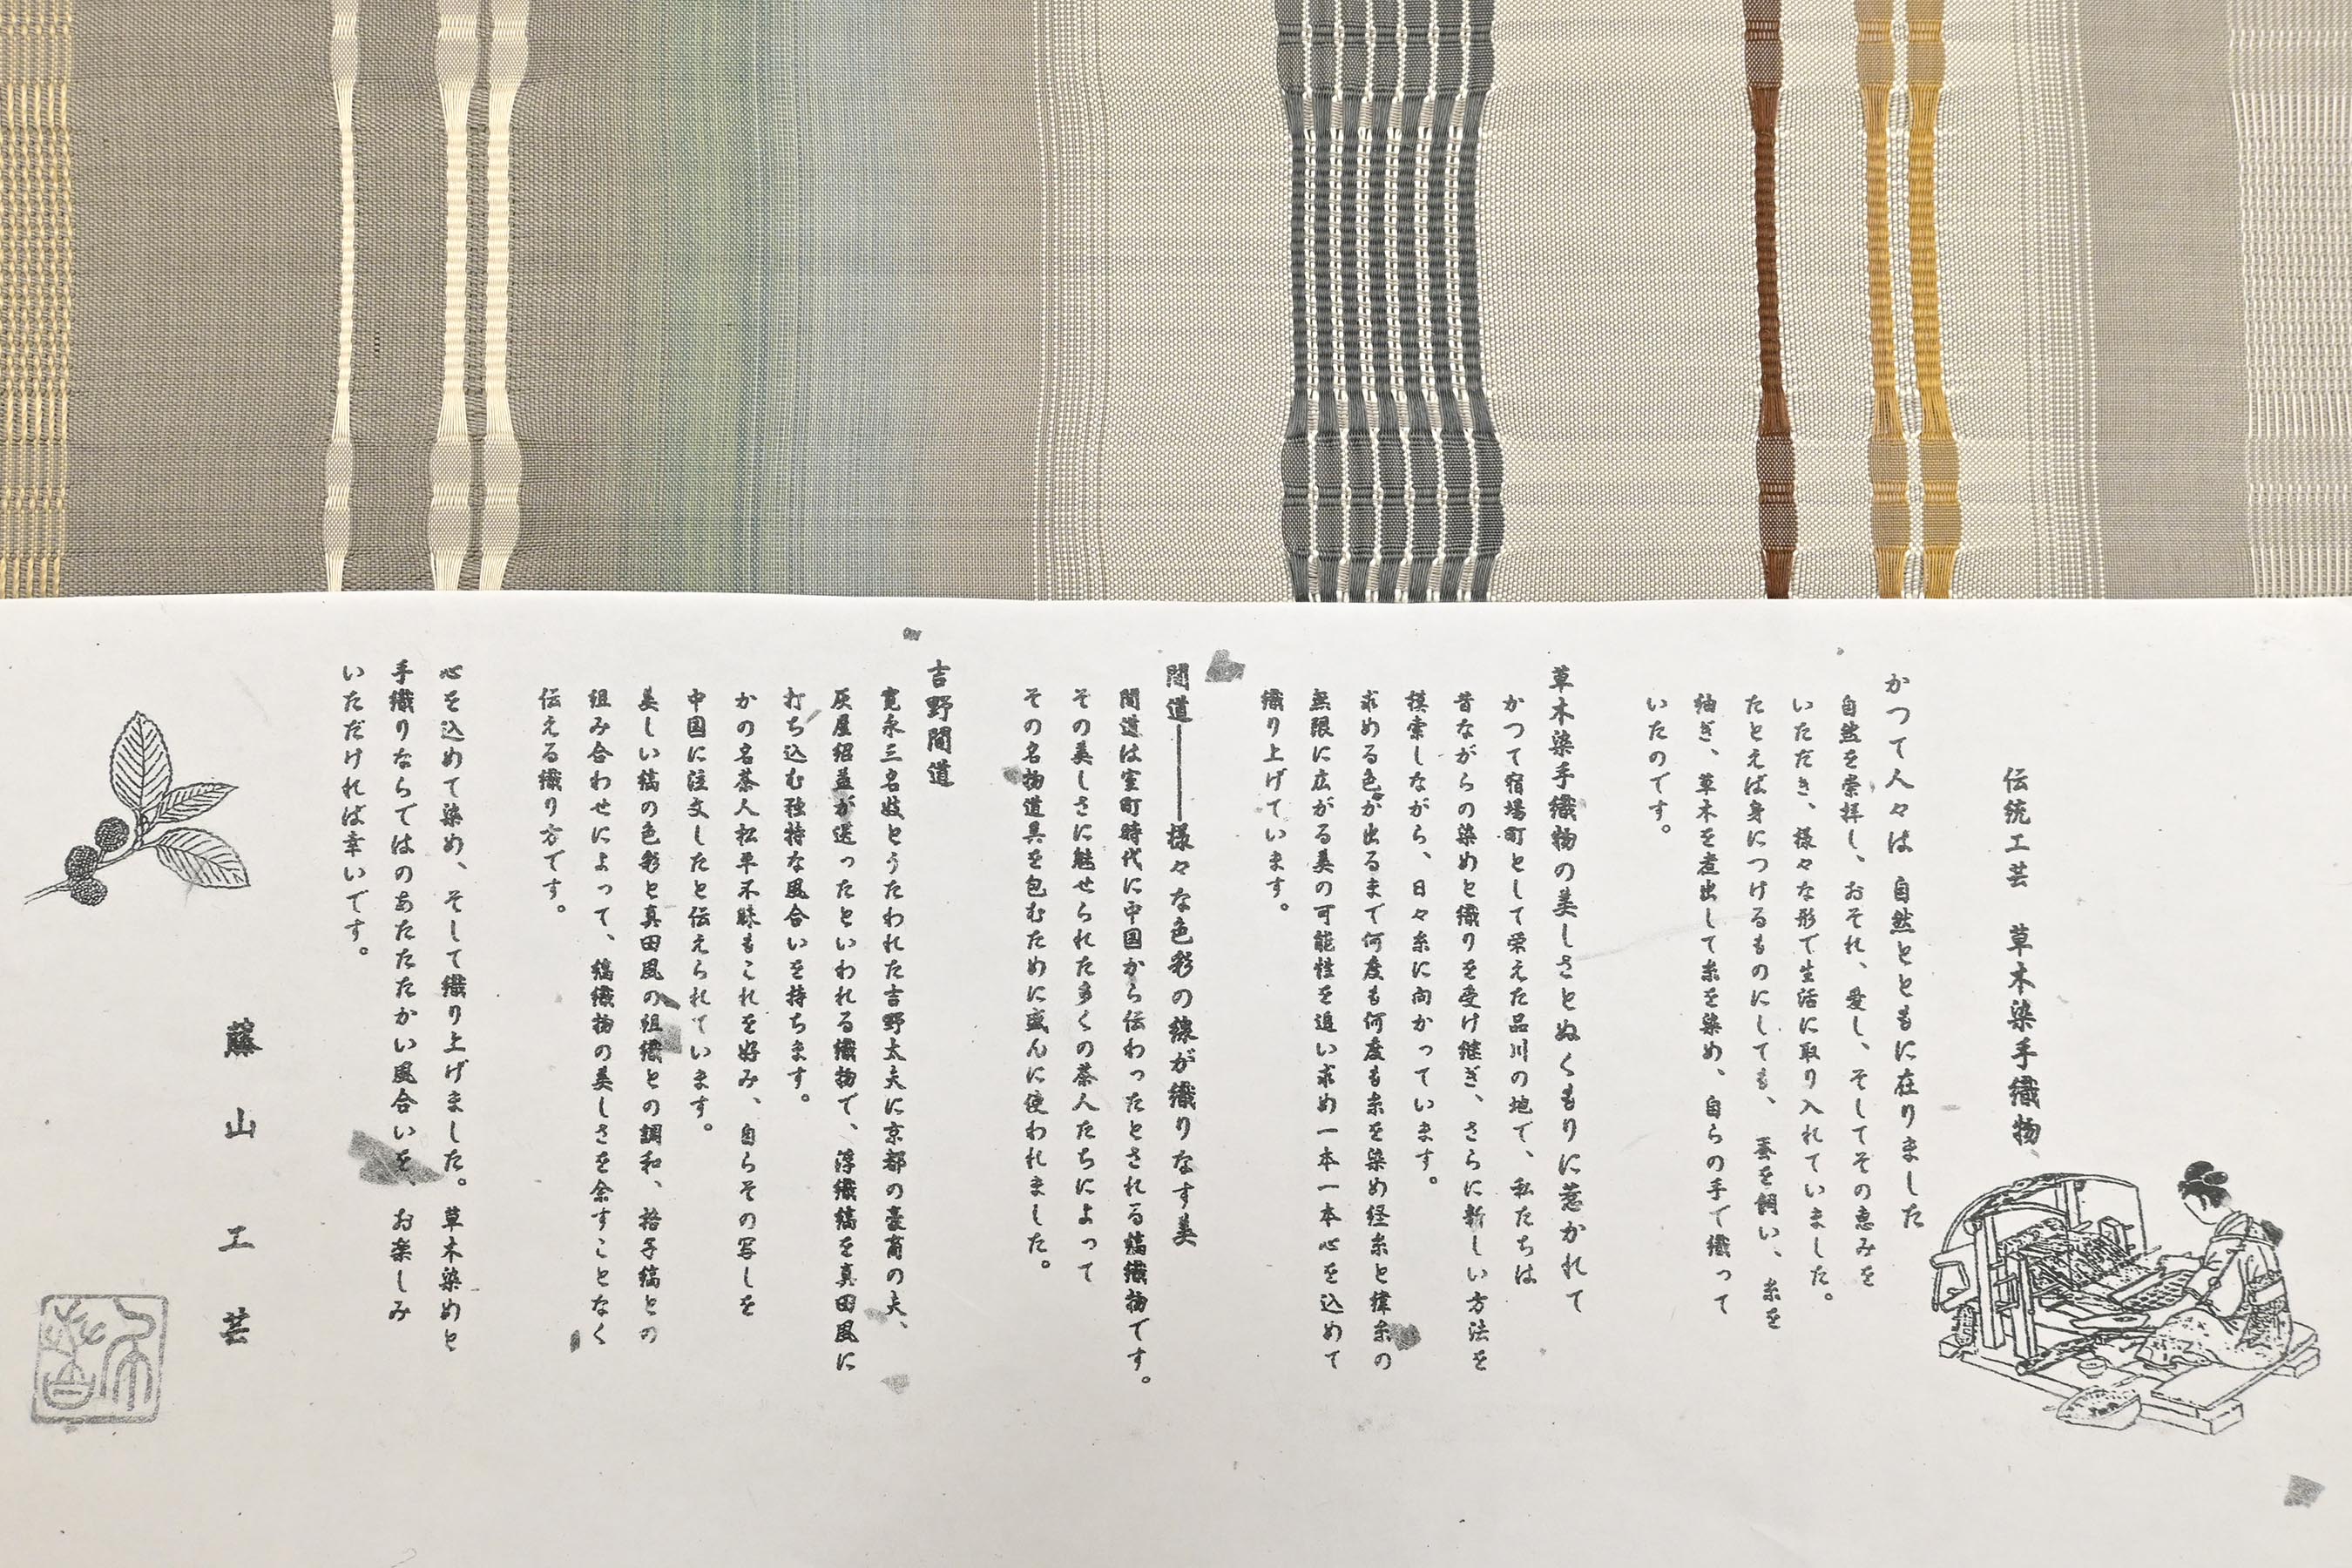 伝統工芸　草木染手織物
かつて人々は 自然とともに在りました
自然を崇拝し、おそれ、愛し、そしてその恵みを
いただき、様々な形で生活に取り入れていました。
たとえば身につけるものにしても、蚕を飼い、糸を
紬ぎ、草木を煮出して糸を染め、自らの手で織って
いたのです。
草木染手織物の美しさとぬくもりに惹かれて
かつて宿場町として栄えた品川の地で、私たちは
昔ながらの染めと織りを受け継ぎ、さらに新しい方法を
模索しながら、日々糸に向かっています。
求める色が出るまで何度も何度も糸を染め経糸と緯糸の
無限に広がる美の可能性を追い求め一本一本心を込めて
織り上げています。
間道――様々な色彩の線が織りなす美
間道は室町時代に中国から伝わったとされる縞織物です。
その美しさに魅せられた多くの茶人たちによって
その名物道具を包むために盛んに使われました。
吉野間道
寛永三名妓とうたわれた吉野太夫に京都の豪商の夫、
灰屋紹益が送ったといわれる織物で、浮織縞を真田風に
打ち込む独特な風合いを持ちます。
かの名茶人松平不昧もこれを好み、自らその写しを
中国に注文したと伝えられています。
美しい縞の色彩と真田風の組織との調和、格子縞との
組み合わせによって、縞織物の美しさを余すことなく
伝える織り方です。
心を込めて染め、そして織り上げました。草木染めと
手織りならではのあたたかい風合いを、お楽しみ
いただければ幸いです。
藤山工芸